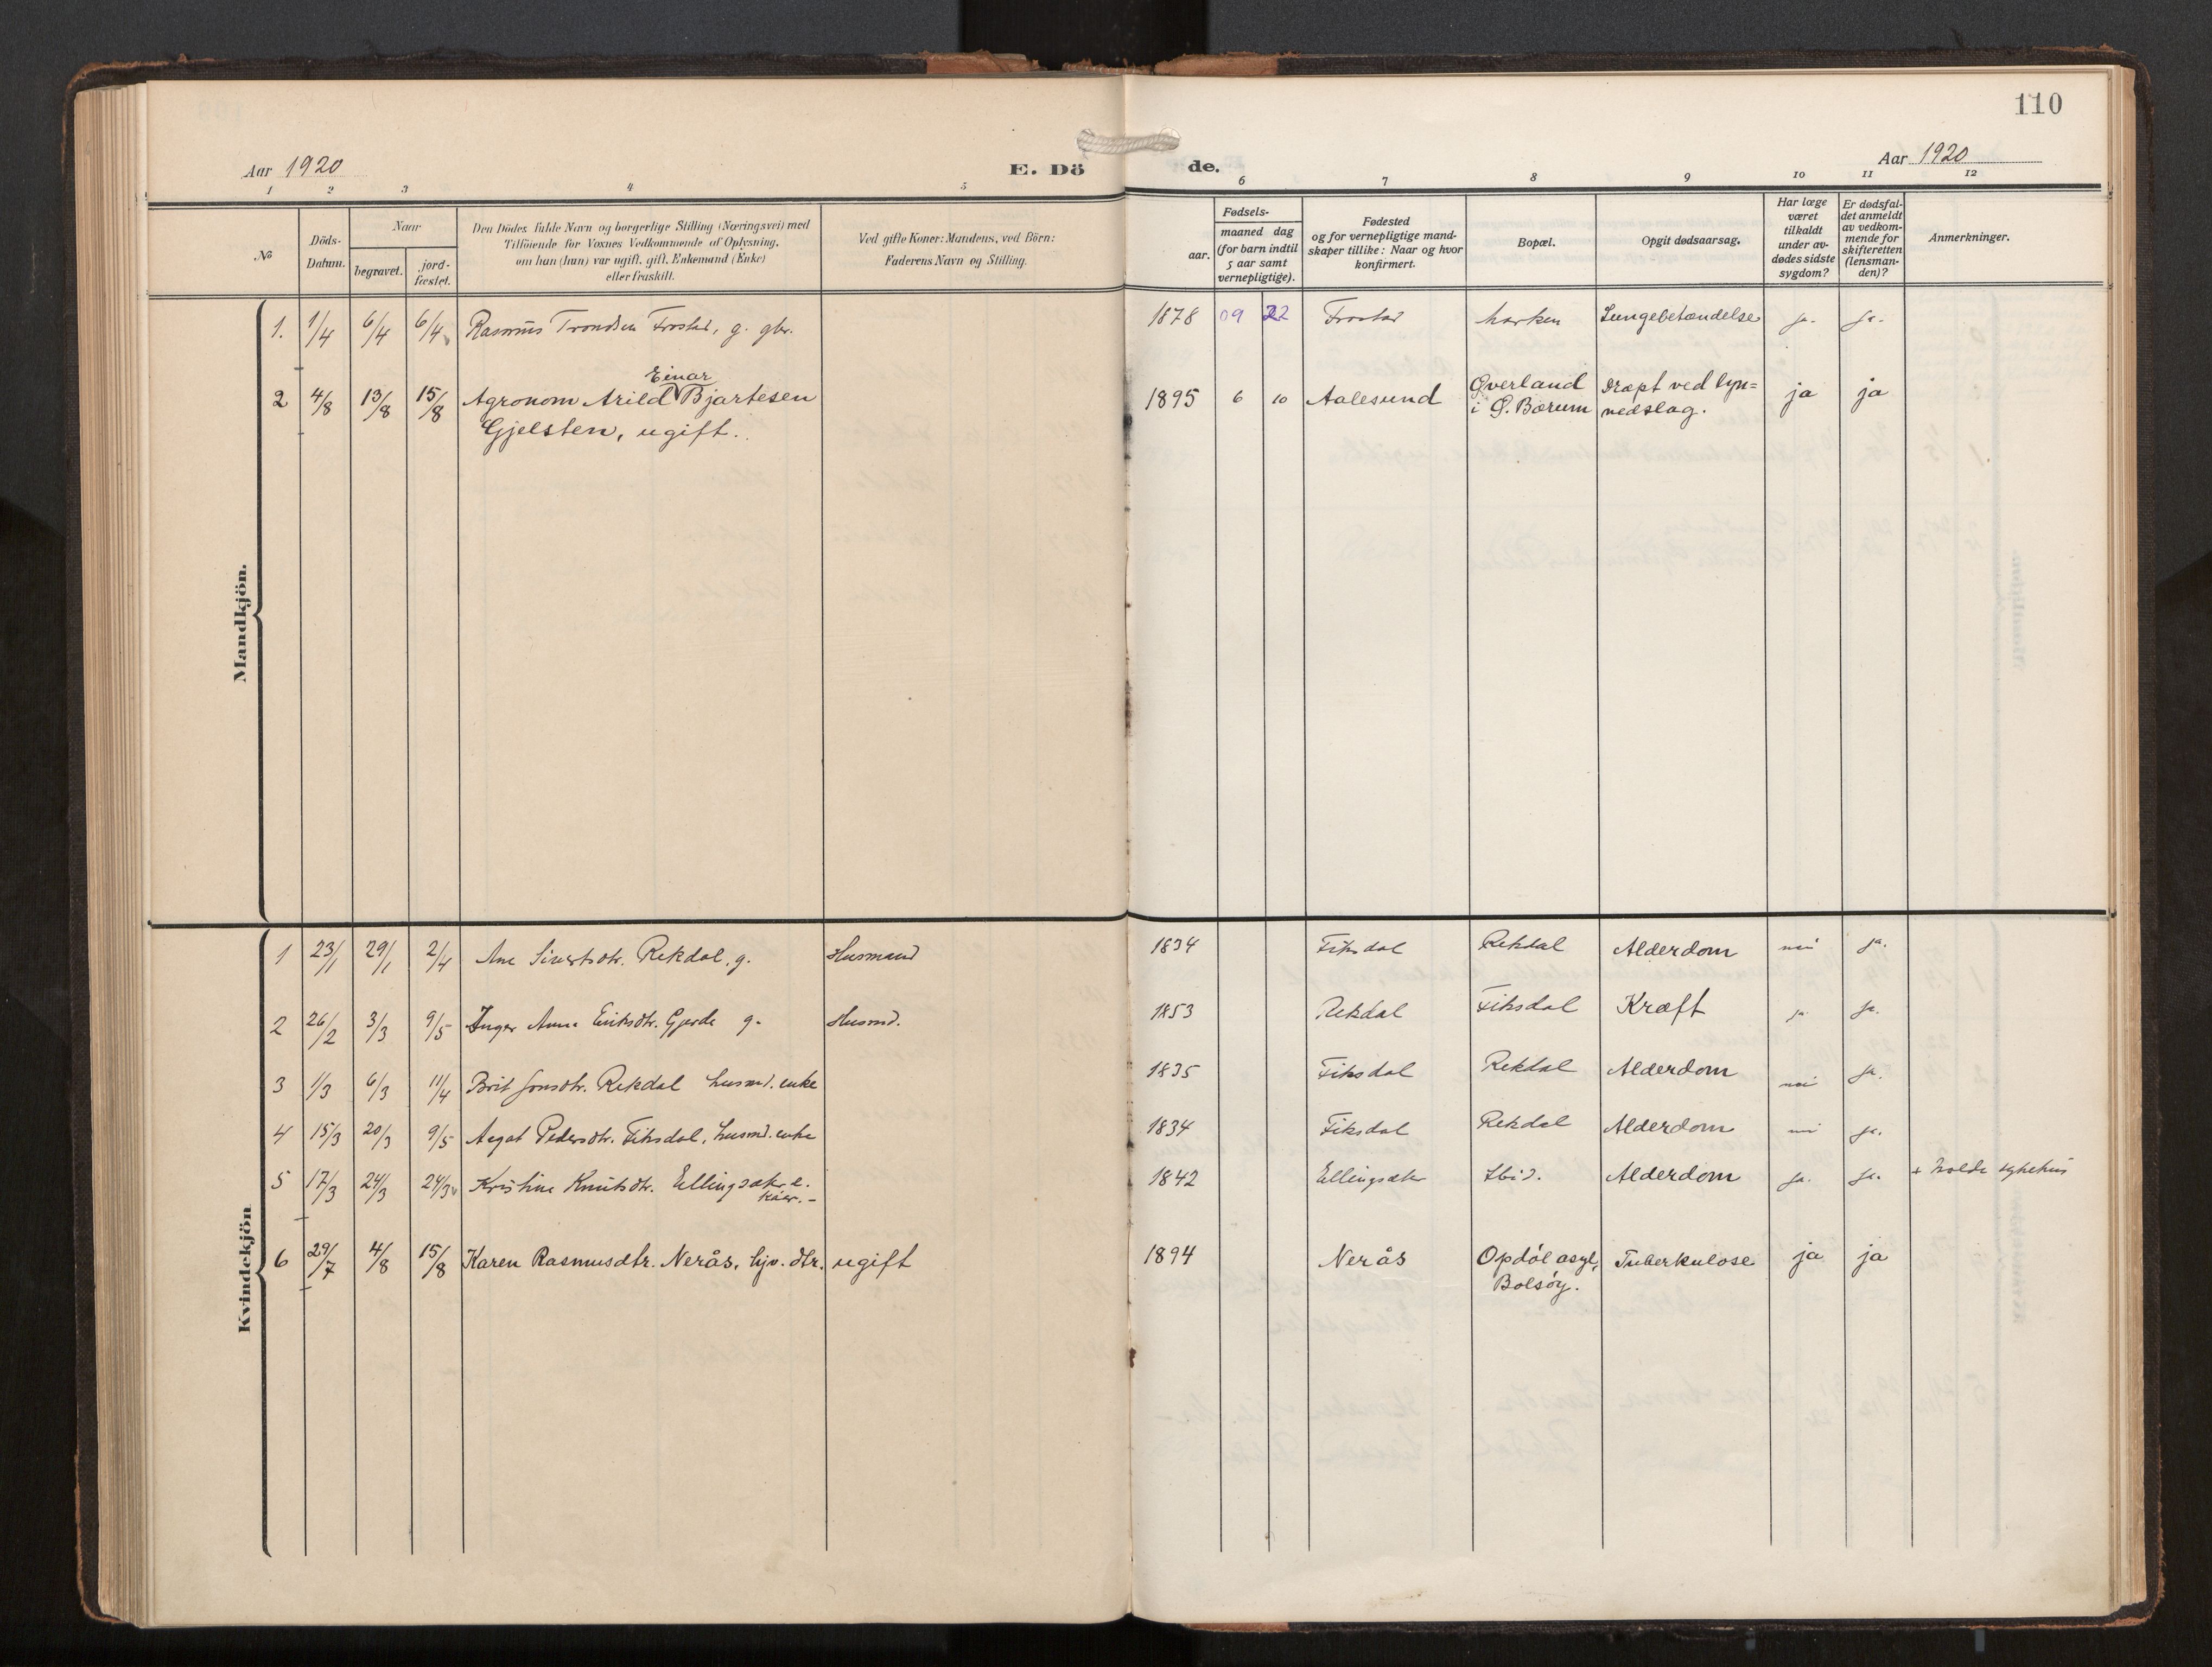 110
Aar 1920
E. Döde.
Aar 1920
1 2 3 4 5 6 7 8 9 10 11 12
No
Döds-
Datum.
Naar
begravet.
jord-
fæstet.
Den Dödes fulde Navn og borgerlige Stilling (Næringsvei) med
Tilföiende for Voxnes Vedkommende af Oplysning,
om han (hun) var ugift, gift, Enkemand (Enke)
eller fraskilt.
Ved gifte Koner: Mandens, ved Börn:
Faderens Navn og Stilling.
Fødsels-
aar.
maaned dag
(for barn indtil
5 aar samt
vernepligtige).
Fødested
og for vernepligtige mand-
skaper tillike: Naar og hvor
konfirmert.
Bopæl.
Opgit dødsaarsag.
Har læge
været
tilkaldt
under av-
dødes sidste
sygdom?
Er dødsfal-
det anmeldt
av vedkom-
mende for
skifteretten
(lensman-
den)?
Anmerkninger.
Mandkjön.
1. 1/4 6/4 6/4 Rasmus Trondsen Frostad, g. gbr. 1878 09 22 Frostad Lungebetændelse ja. ja.
Einar
2 4/8 13/8 15/8 Agronom Arild Bjartesen 1895 6 10 Aalesund Øverland Dræpt ved lyn= ja ja
Gjelsten, ugift. i Ø. Bærum nedslag.
Kvindekjön
1 23/1 29/1 2/4 Ane Sivertsdtr. Rekdal, g. Husmand 1834 Fiksdal Rekdal Alderdom nei ja.
2 26/2 3/3 9/5 Inger Anna Eriksdtr. Gjerde g. Husmd. 1853 Rekdal Fiksdal Kræft ja ja.
3 1/3 6/3 11/4 Brit Jonsdtr. Rekdal husmd. enke 1835 Fiksdal Rekdal Alderdom nei ja.
4 15/3 20/3 9/5 Aagot Pedersdtr. Fiksdal, husmd. enke 1834 Fiksdal Rekdal Alderdom nei ja.
5 17/3 24/3 24/3 Kristine Knutsdtr. Ellingsæter e. 1842 Ellingsæter Ibid. Alderdom ja. ja. + Molde sykehus
kaar.-
6 29/7 4/8 15/8 Karen Rasmusdtr. Nerås, hjv. dtr. ugift 1894 Nerås Opdöl asyl, Tuberkulose ja ja
Bolsöy.